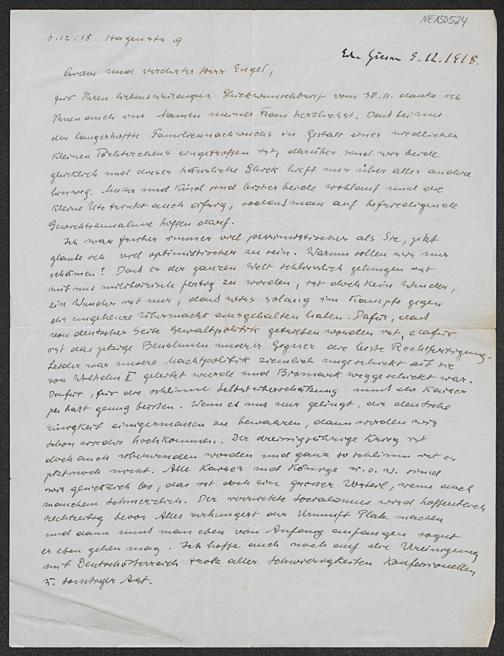 NEA50524
6.12.18. Hagenstr 9
Edm. Giesen 9.12.1918.
Lieber und verehrter Herr Engel,
für Ihren liebenswürdigen Glückwunschbrief vom 30.11. danke ich
Ihnen auch im Namen meiner Frau herzlichst. Dass bei uns
der langerhoffte Familienzuwachs in Gestalt eines niedlichen
kleinen Töchterchens eingetroffen ist, darüber sind wir beide
glücklich und dieses häusliche Glück hilft mir über alles andere
hinweg. Mutter und Kind sind bisher beide wohlauf und die
kleine Ute trinkt auch eifrig, sodass man auf befriedigende
Gewichtszunahme hoffen darf.
Ich war früher immer viel pessimistischer als Sie, jetzt
glaube ich viel optimistischer zu sein. Warum sollen wir uns
schämen? Dass es der ganzen Welt schliesslich gelungen ist
mit uns militärisch fertig zu werden, ist doch kein Wunder,
ein Wunder ist nur, dass wir's solang im Kampfe gegen
die ungeheure Übermacht ausgehalten haben. Dafür, dass
von deutscher Seite Gewaltpolitik getrieben worden ist, dafür
ist das jetzige Benehmen unserer Gegner die beste Rechtfertigung.
Leider war unsere Machtpolitik ziemlich ungeschickt seit sie
von Wilhelm II geleitet wurde und Bismarck weggeschickt war.
Dafür, für die schlimme Selbstüberschätzung muss der Kaiser
ja hart genug büssen. Wenn es uns nur gelingt, die deutsche
Einigkeit einigermassen zu bewahren, dann werden wir
schon wieder hochkommen. Der dreissigjährige Krieg ist
doch auch überwunden worden und ganz so schlimm ist es
jetzt noch nicht. Alle Kaiser und Könige u.s.w. sind
wir glücklich los, das ist doch ein grosser Vorteil, wenn auch
manchem schmerzlich. Der verrückte Socialismus wird hoffentlich
rechtzeitig bevor Alles verhungert der Vernunft Platz machen
und dann muss man eben von Anfang anfangen so gut
es eben gehen mag. Ich hoffe auch noch auf die Vereinigung
mit Deutschösterreich trotz aller Schwierigkeiten konfessioneller
u. sonstiger Art.